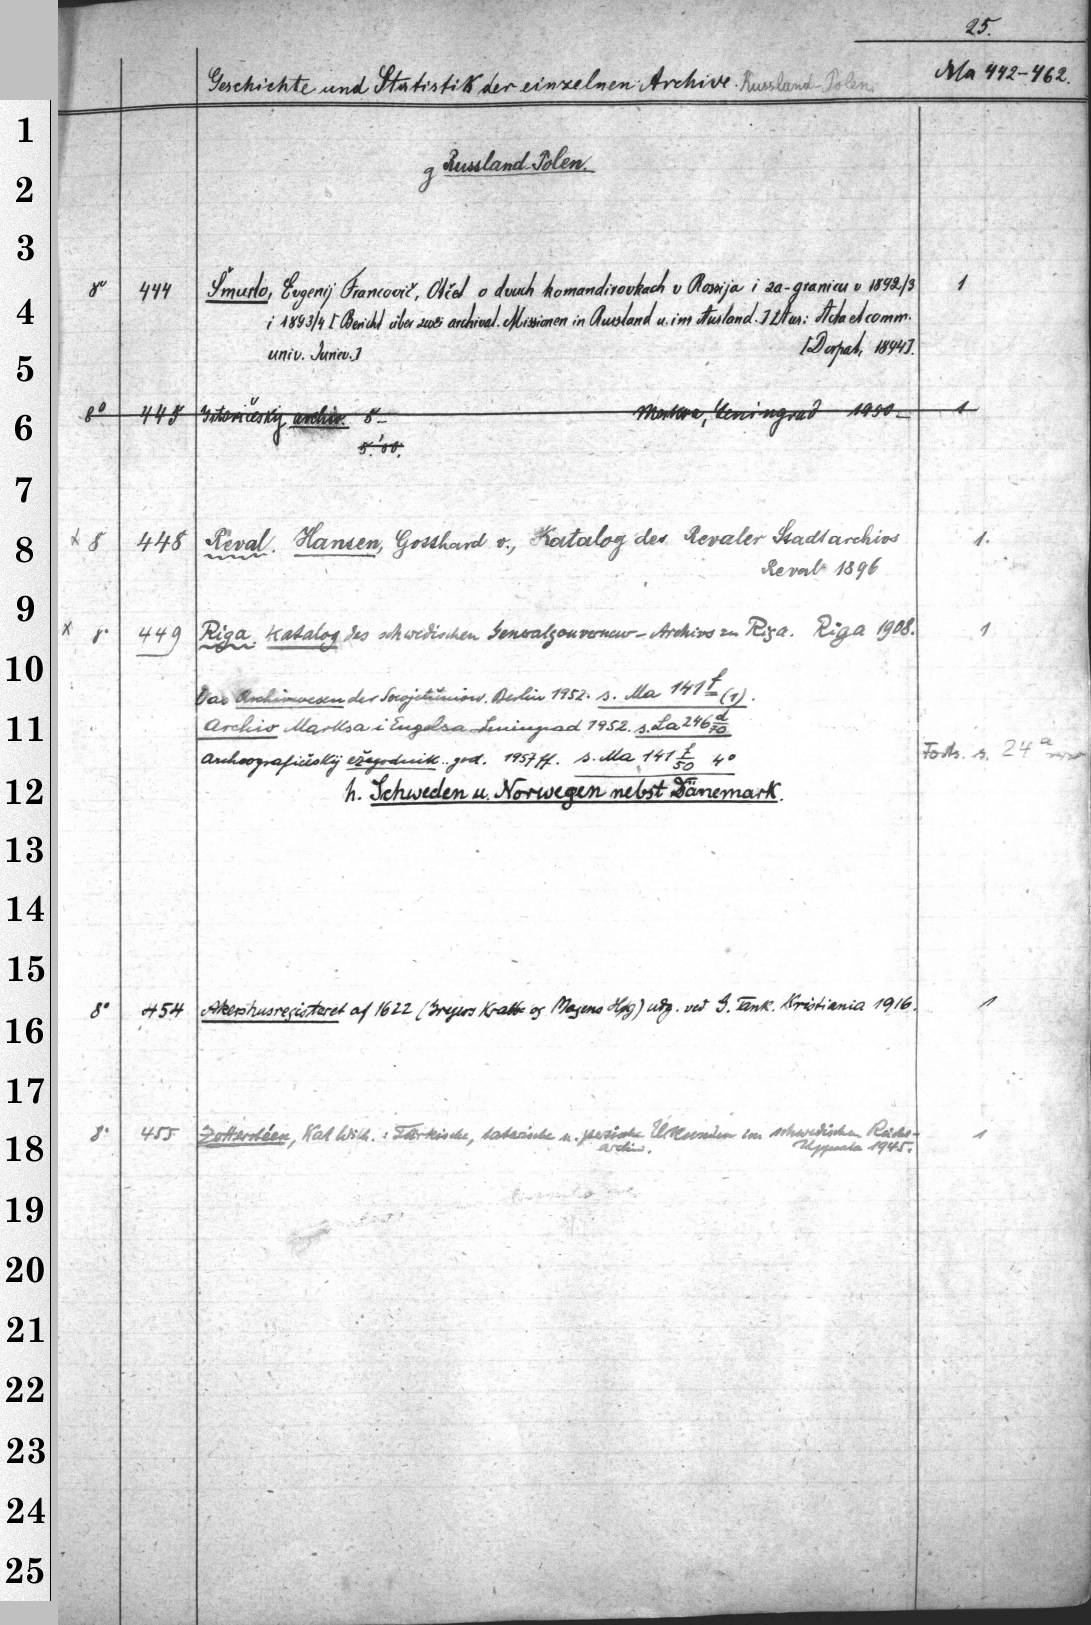 25.
Geschichte und Statistik der einzelnen Archive. Russland-Polen. Ma 442-462.
g Russland-Polen.
8° 444 Šmurlo, Evgenij Francovič, Otčet o dvuch komandirovkach v Rossija i za-granicu v 1892/3 1
i 1893/4 [Bericht über zwei archival. Missionen in Russland u. im Ausland.] [Aus: Acta et comm.
univ. Juriev.] [Dorpat, 1894].
8° 445 Istoričeskij archiv. 5- Moskva, Leningrad 1950- 1
5.'00.
x 8 448 Reval. Hansen, Gotthard v., Katalog des Revaler Stadtarchivs 1.
Reval 1896
x 8° 449 Riga. Katalog des schwedischen Generalgouverneur-Archivs zu Riga. Riga 1908. 1
Das Archivwesen der Sowjetunion. Berlin 1952. s. Ma 141 f (1).
Archiv Marksa i Engelsa Leningrad 1952. s. La 246 d/70
Archeografičeskij ežegodnik.. god. 1957 ff. s. Ma 141 f/50 4° Forts. s. 24 a
h. Schweden u. Norwegen nebst Dänemark.
8° 454 Akershusregisteret af 1622 (Gregers Krabbe og Mogens Høg) udg. ved G. Tank. Kristiania 1916. 1
8° 455 Zetterstéen, Karl Wilh.: Türkische, tatarische u. persische Urkunden im schwedischen Reichs- 1
archiv. Uppsala 1945.
1
2
3
4
5
6
7
8
9
10
11
12
13
14
15
16
17
18
19
20
21
22
23
24
25